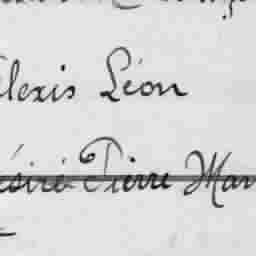 Alexis Léon
ésiré Pierre Mar